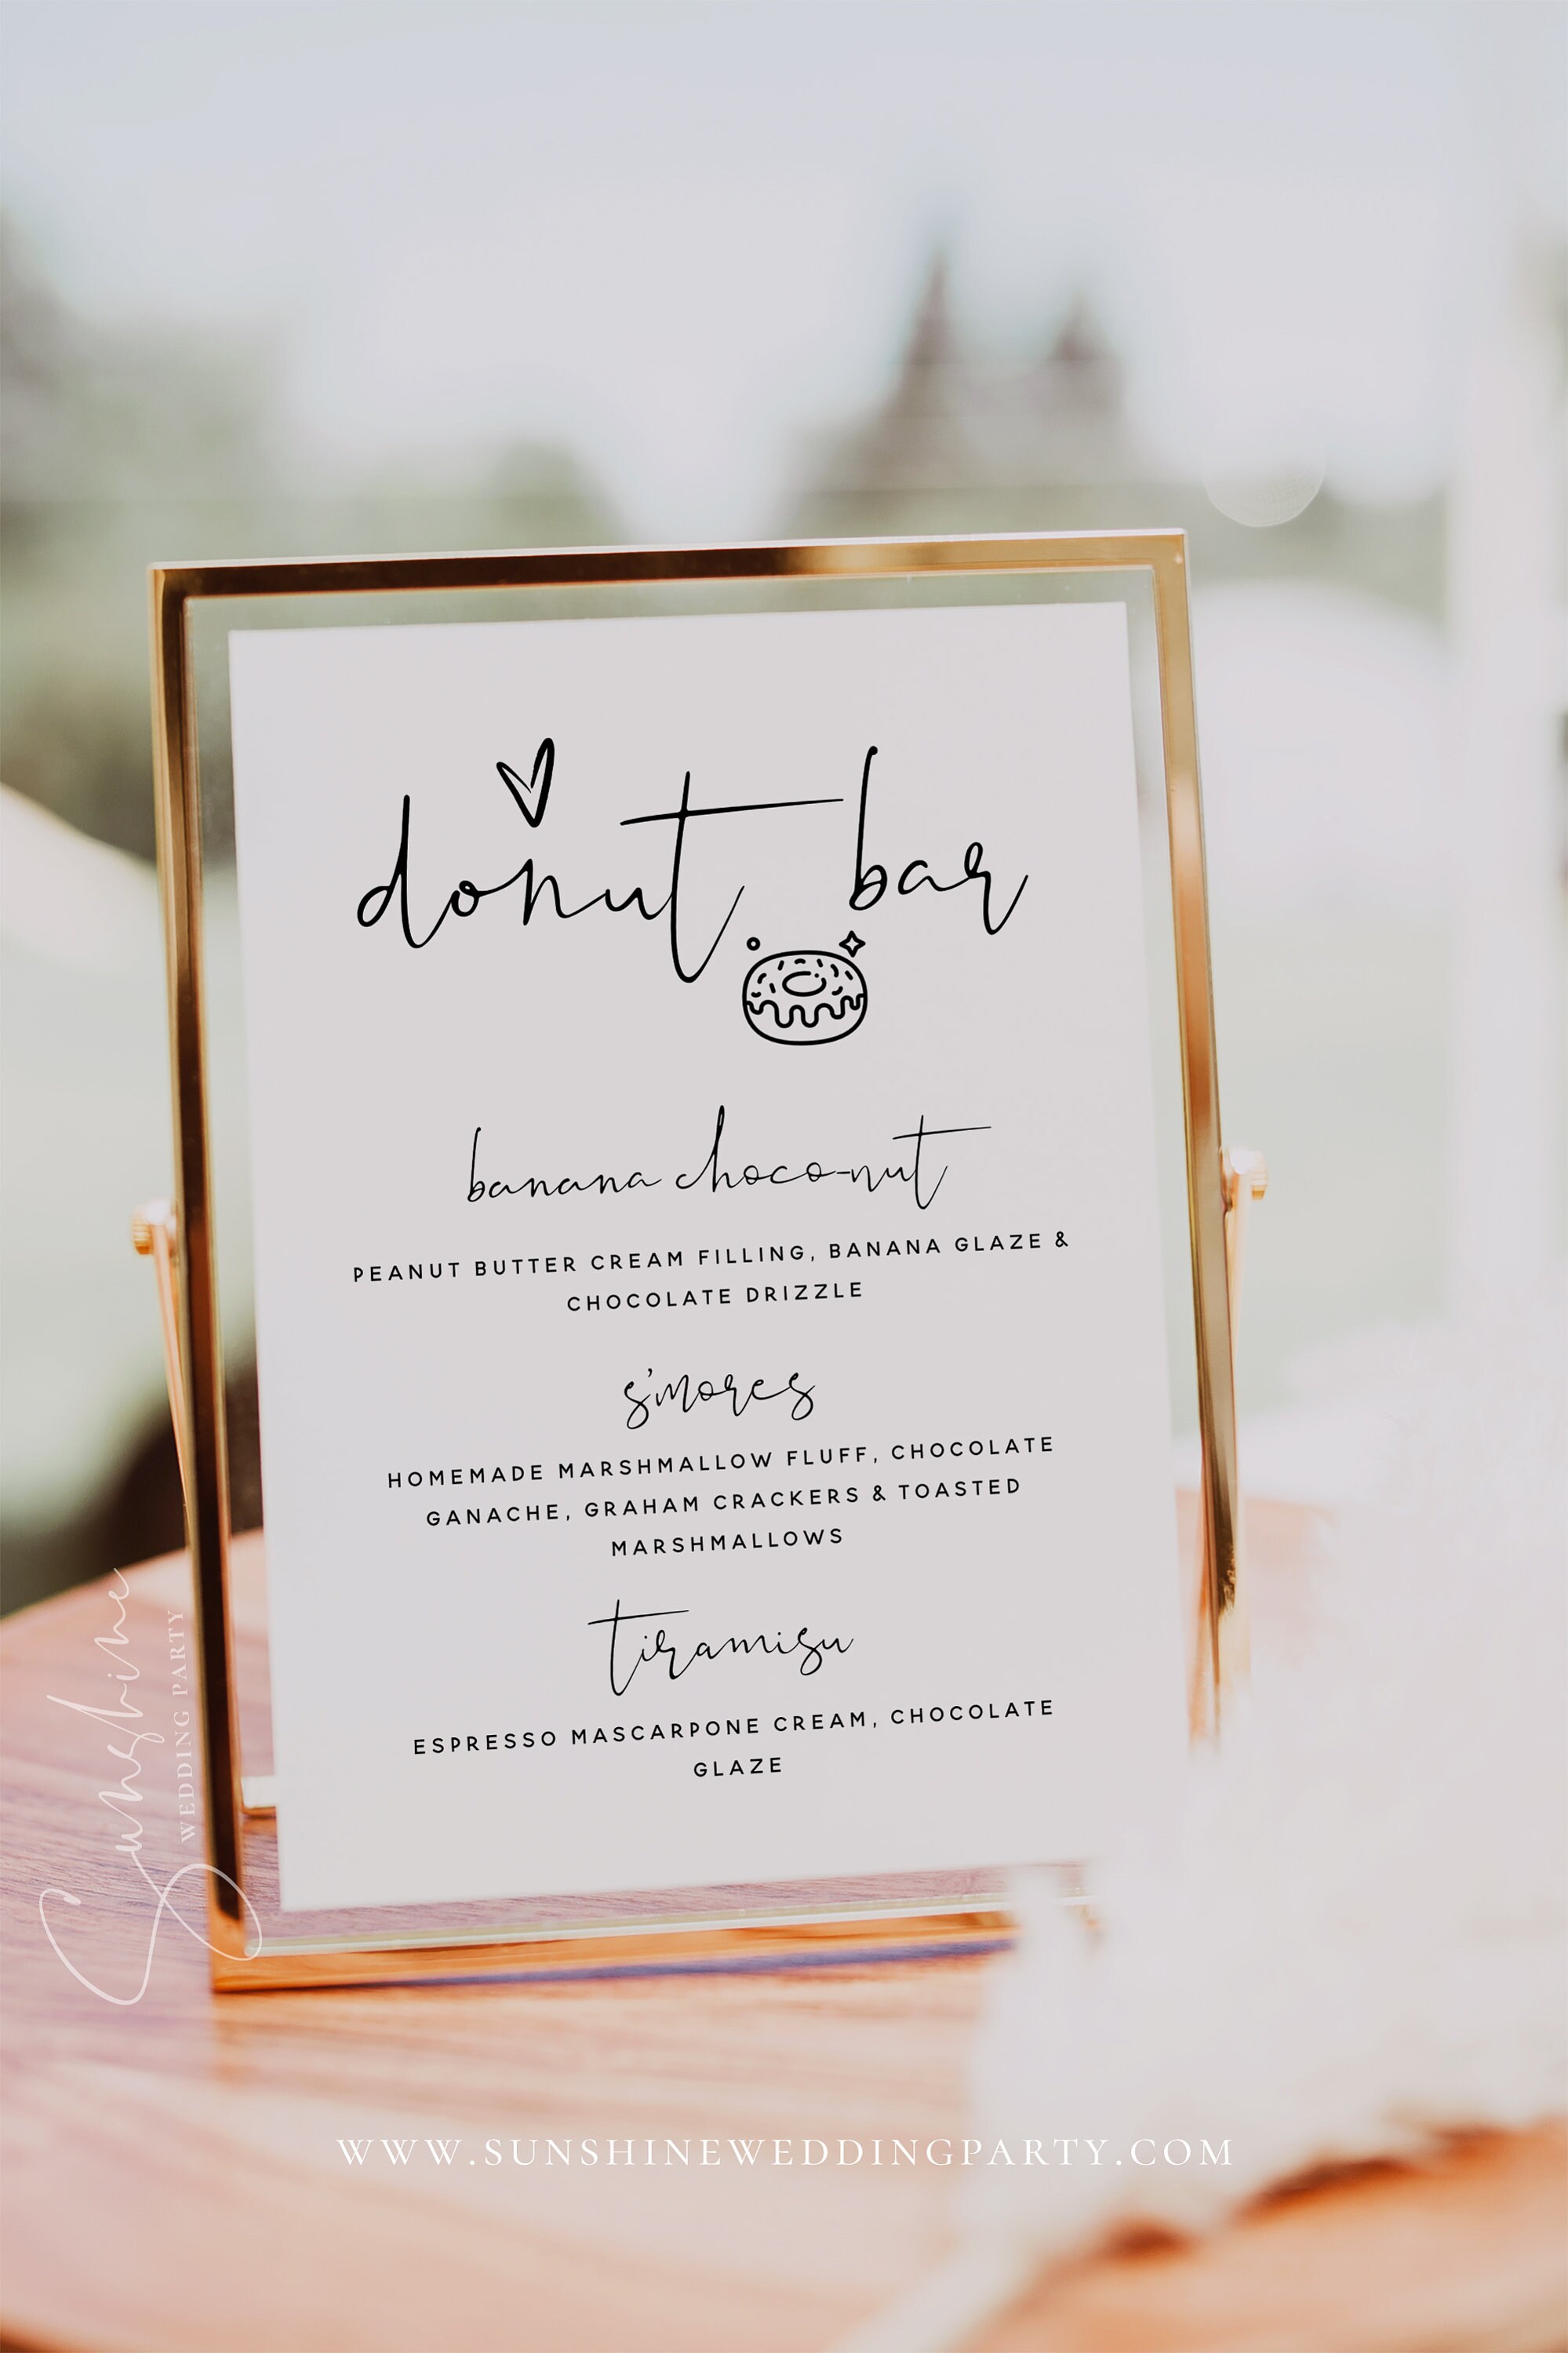 donut bar
banana choco-nut
PEANUT BUTTER CREAM FILLING, BANANA GLAZE &
CHOCOLATE DRIZZLE
s'mores
HOMEMADE MARSHMALLOW FLUFF, CHOCOLATE
GANACHE, GRAHAM CRACKERS & TOASTED
MARSHMALLOWS
tiramisu
ESPRESSO MASCARPONE CREAM, CHOCOLATE
GLAZE
Sunshine
WEDDING PARTY
WWW.SUNSHINEWEDDINGPARTY.COM